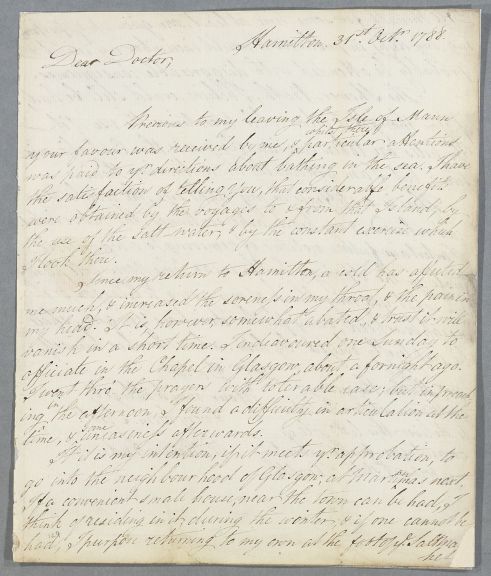 Hamilton. 31st. Octr. 1788.
Dear Doctor,
Previous to my leaving the Isle of Mann
your favour was received by me, & particular attention
whilst there
was paid to yr. directions about bathing in the sea. I have
the satisfaction of telling you, that considerable benefits
were obtained by the voyages to & from that Island, by
the use of the salt water, & by the constant exercise which
I took there.
Since my return to Hamilton, a cold has affected
me much, & increased the soreness in my throat, & the pain in
my head. It is, however, somewhat abated, & I trust it will
vanish in a short time. I endeavoured one Sunday to
officiate in the Chapel in Glasgow, about a fornight ago.
I went thro' the prayers with tolerable ease; but in preach
ing in the afternoon, I found a difficulty in articulation at the
time, & some uneasiness afterwards.
It is my intention, if it meets yr. approbation, to
go into the neighbourhood of Glasgow, at next
If a convenient small house, near the town can be had, I
think of residing in it during the winter, & if one cannot be
had, I purpose returning to my own at the foot of